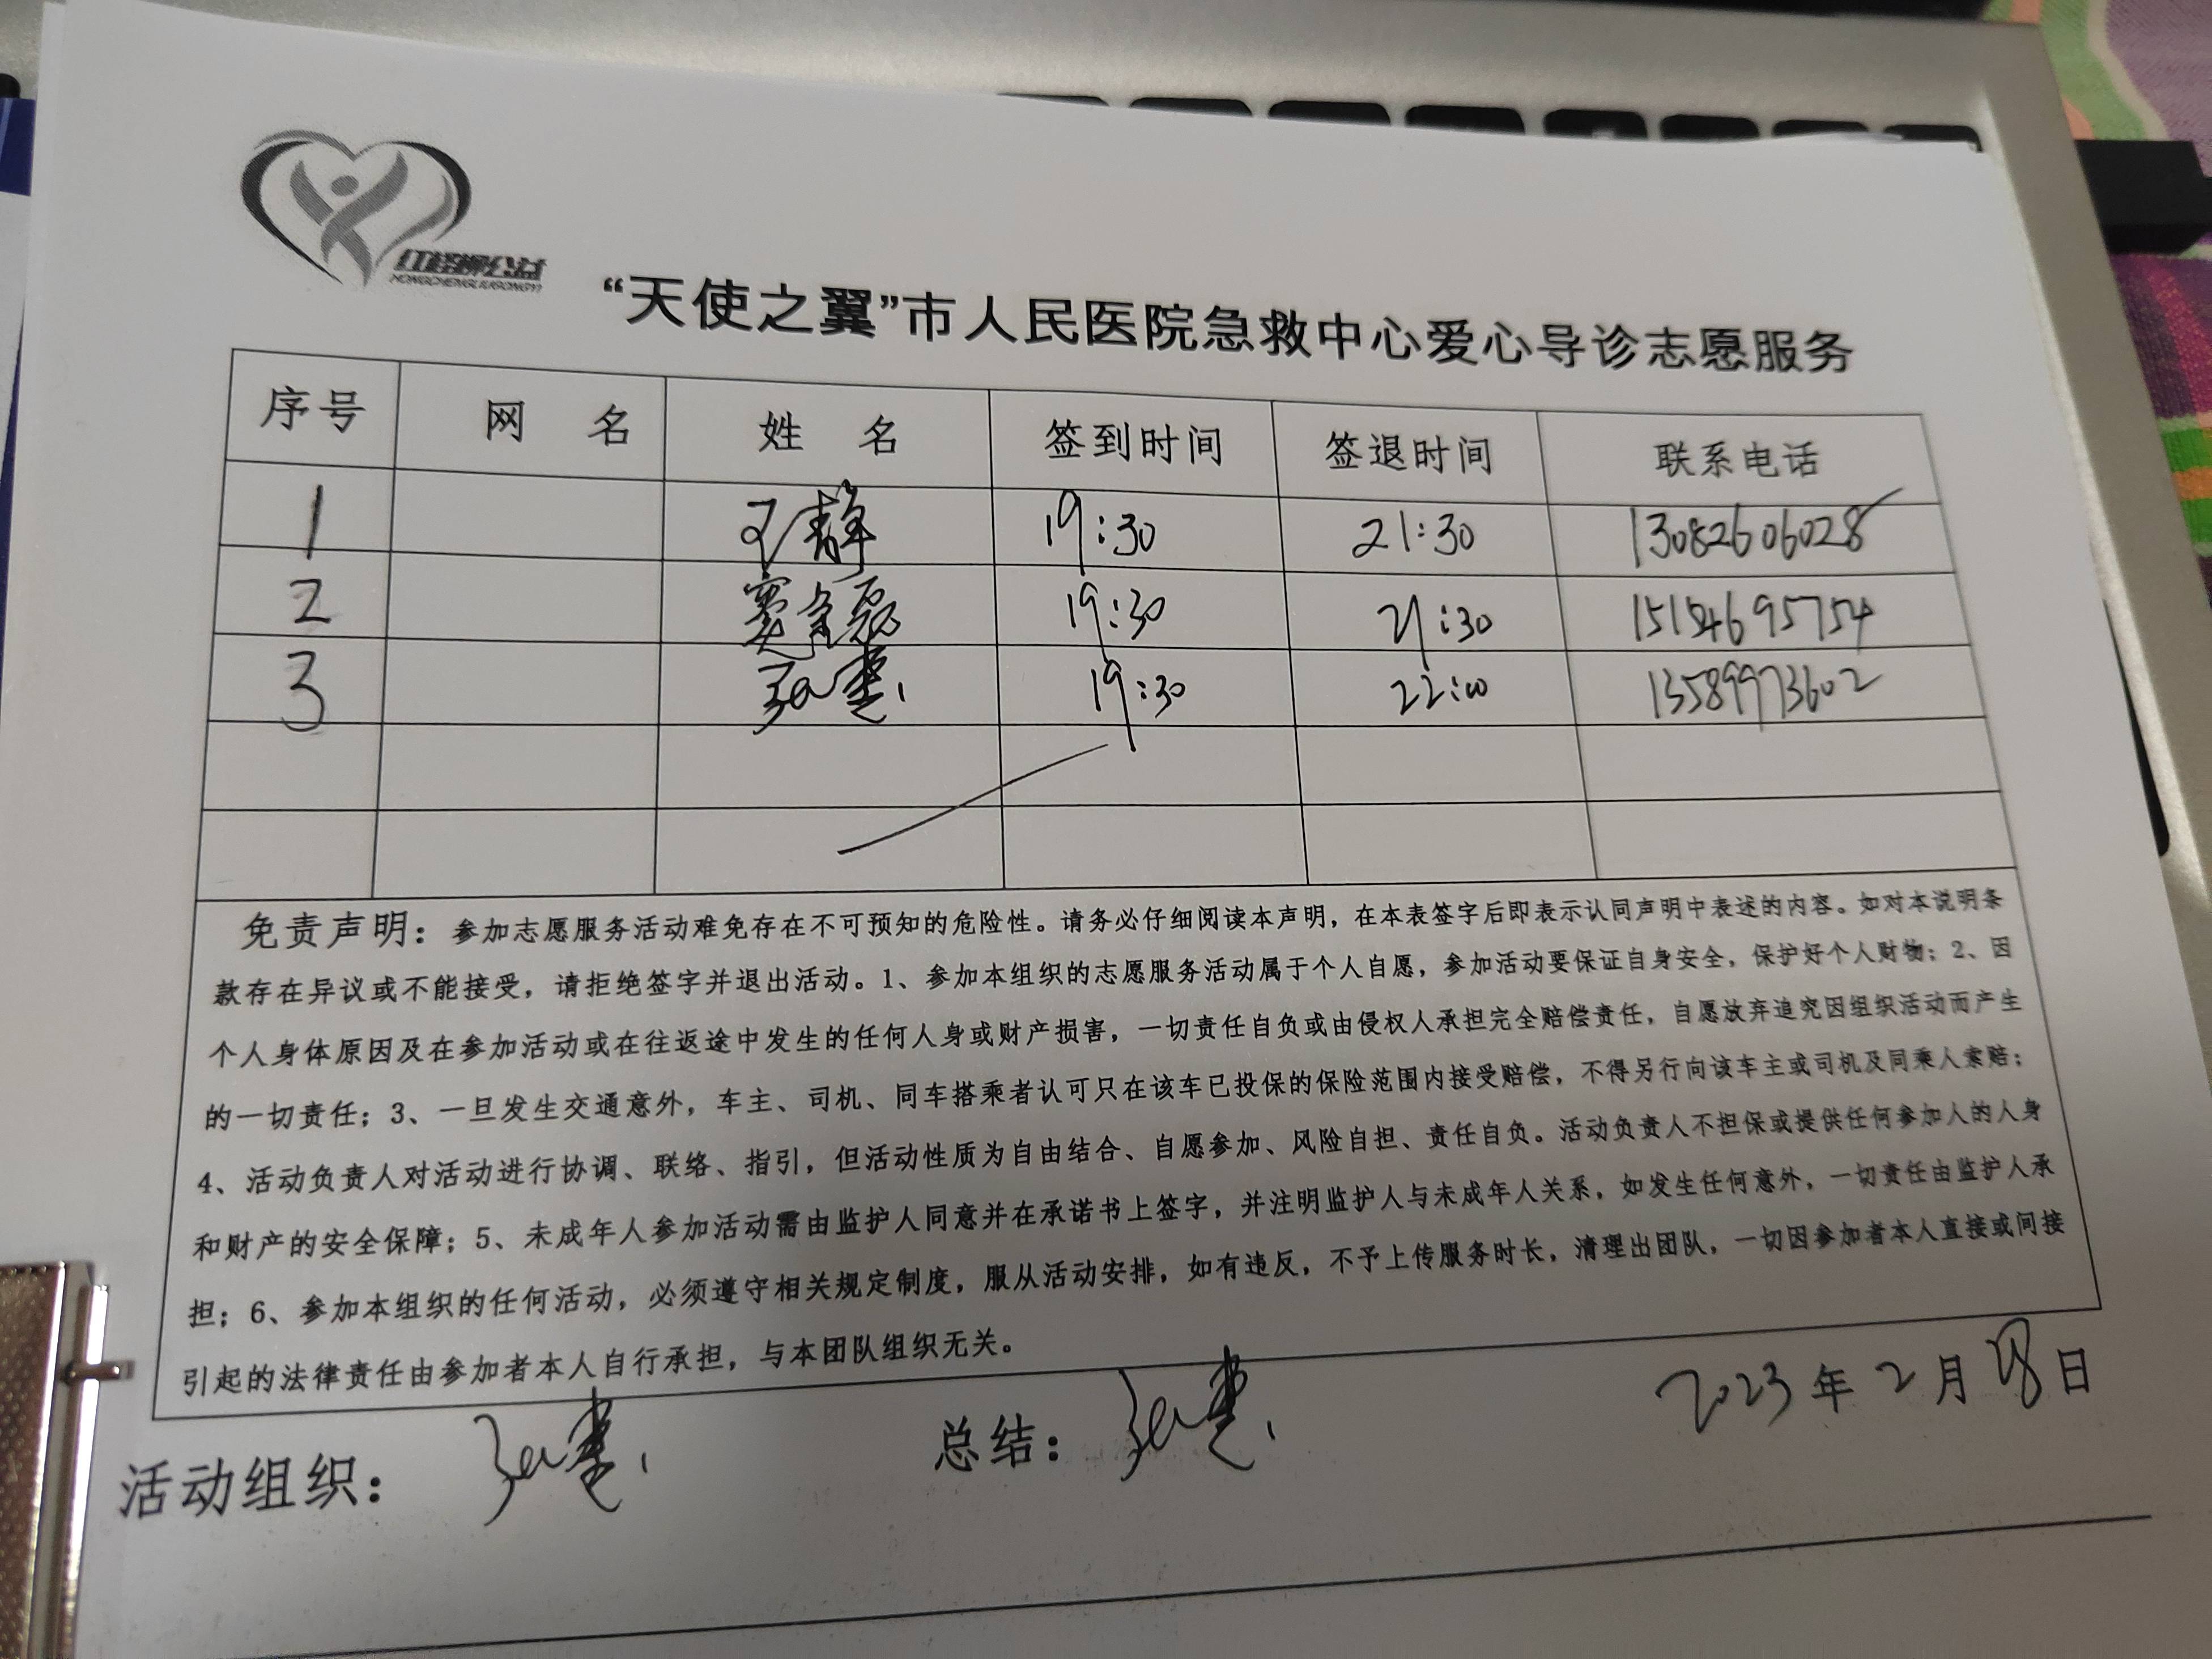 红柽柳公益
HONGCHENGLIUGONGYI
“天使之翼”市人民医院急救中心爱心导诊志愿服务
序号 网 名 姓 名 签到时间 签退时间 联系电话
1 王静 19:30 21:30 13082606028
2 19:30 21:30 15154695754
3 19:30 22:00 13589973602
免责声明：参加志愿服务活动难免存在不可预知的危险性。请务必仔细阅读本声明，在本表签字后即表示认同声明中表述的内容。如对本说明条
款存在异议或不能接受，请拒绝签字并退出活动。1、参加本组织的志愿服务活动属于个人自愿，参加活动要保证自身安全，保护好个人财物；2、因
个人身体原因及在参加活动或在往返途中发生的任何人身或财产损害，一切责任自负或由侵权人承担完全赔偿责任，自愿放弃追究因组织活动而产生
的一切责任；3、一旦发生交通意外，车主、司机、同车搭乘者认可只在该车已投保的保险范围内接受赔偿，不得另行向该车主或司机及同乘人索赔；
4、活动负责人对活动进行协调、联络、指引，但活动性质为自由结合、自愿参加、风险自担、责任自负。活动负责人不担保或提供任何参加人的人身
和财产的安全保障；5、未成年人参加活动需由监护人同意并在承诺书上签字，并注明监护人与未成年人关系，如发生任何意外，一切责任由监护人承
担；6、参加本组织的任何活动，必须遵守相关规定制度，服从活动安排，如有违反，不予上传服务时长，清理出团队，一切因参加者本人直接或间接
引起的法律责任由参加者本人自行承担，与本团队组织无关。
2023年2月28日
活动组织： 总结：